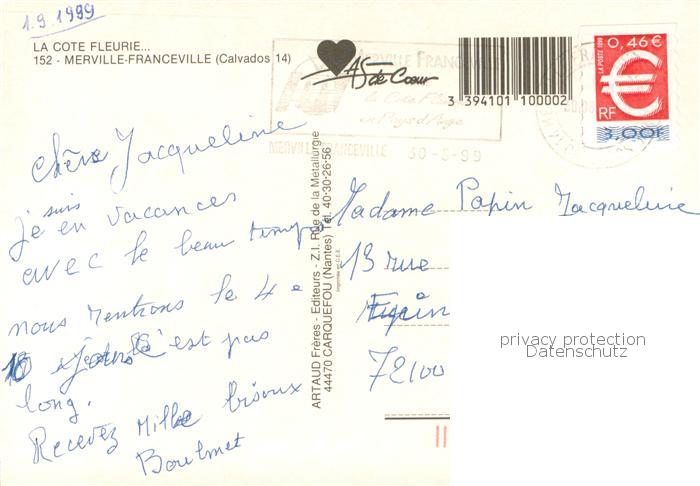 1.9.1999
LA COTE FLEURIE...
152 - MERVILLE-FRANCEVILLE (Calvados 14)
As de Cœur
MERVILLE FRANCEVILLE
la Côte Fleurie
en Pays d'Auge
MERVILLE FRANCEVILLE 30-8-99
3 394101 100002
0,46 €
LA POSTE 1999
RF
3,00F
Chère Jacqueline
suis
je en vacances
avec le beau temps
nous rentrons le 4 e
10 jours c'est pas
long.
Recevez Mille bisoux
ARTAUD Frères - Editeurs - Z.I. Rue de la Métallurgie
44470 CARQUEFOU (Nantes) Tél. 40-30-26-56
Imprimé en C.E.E.
Madame Papin Jacqueline
13 rue
72100
privacy protection
Datenschutz